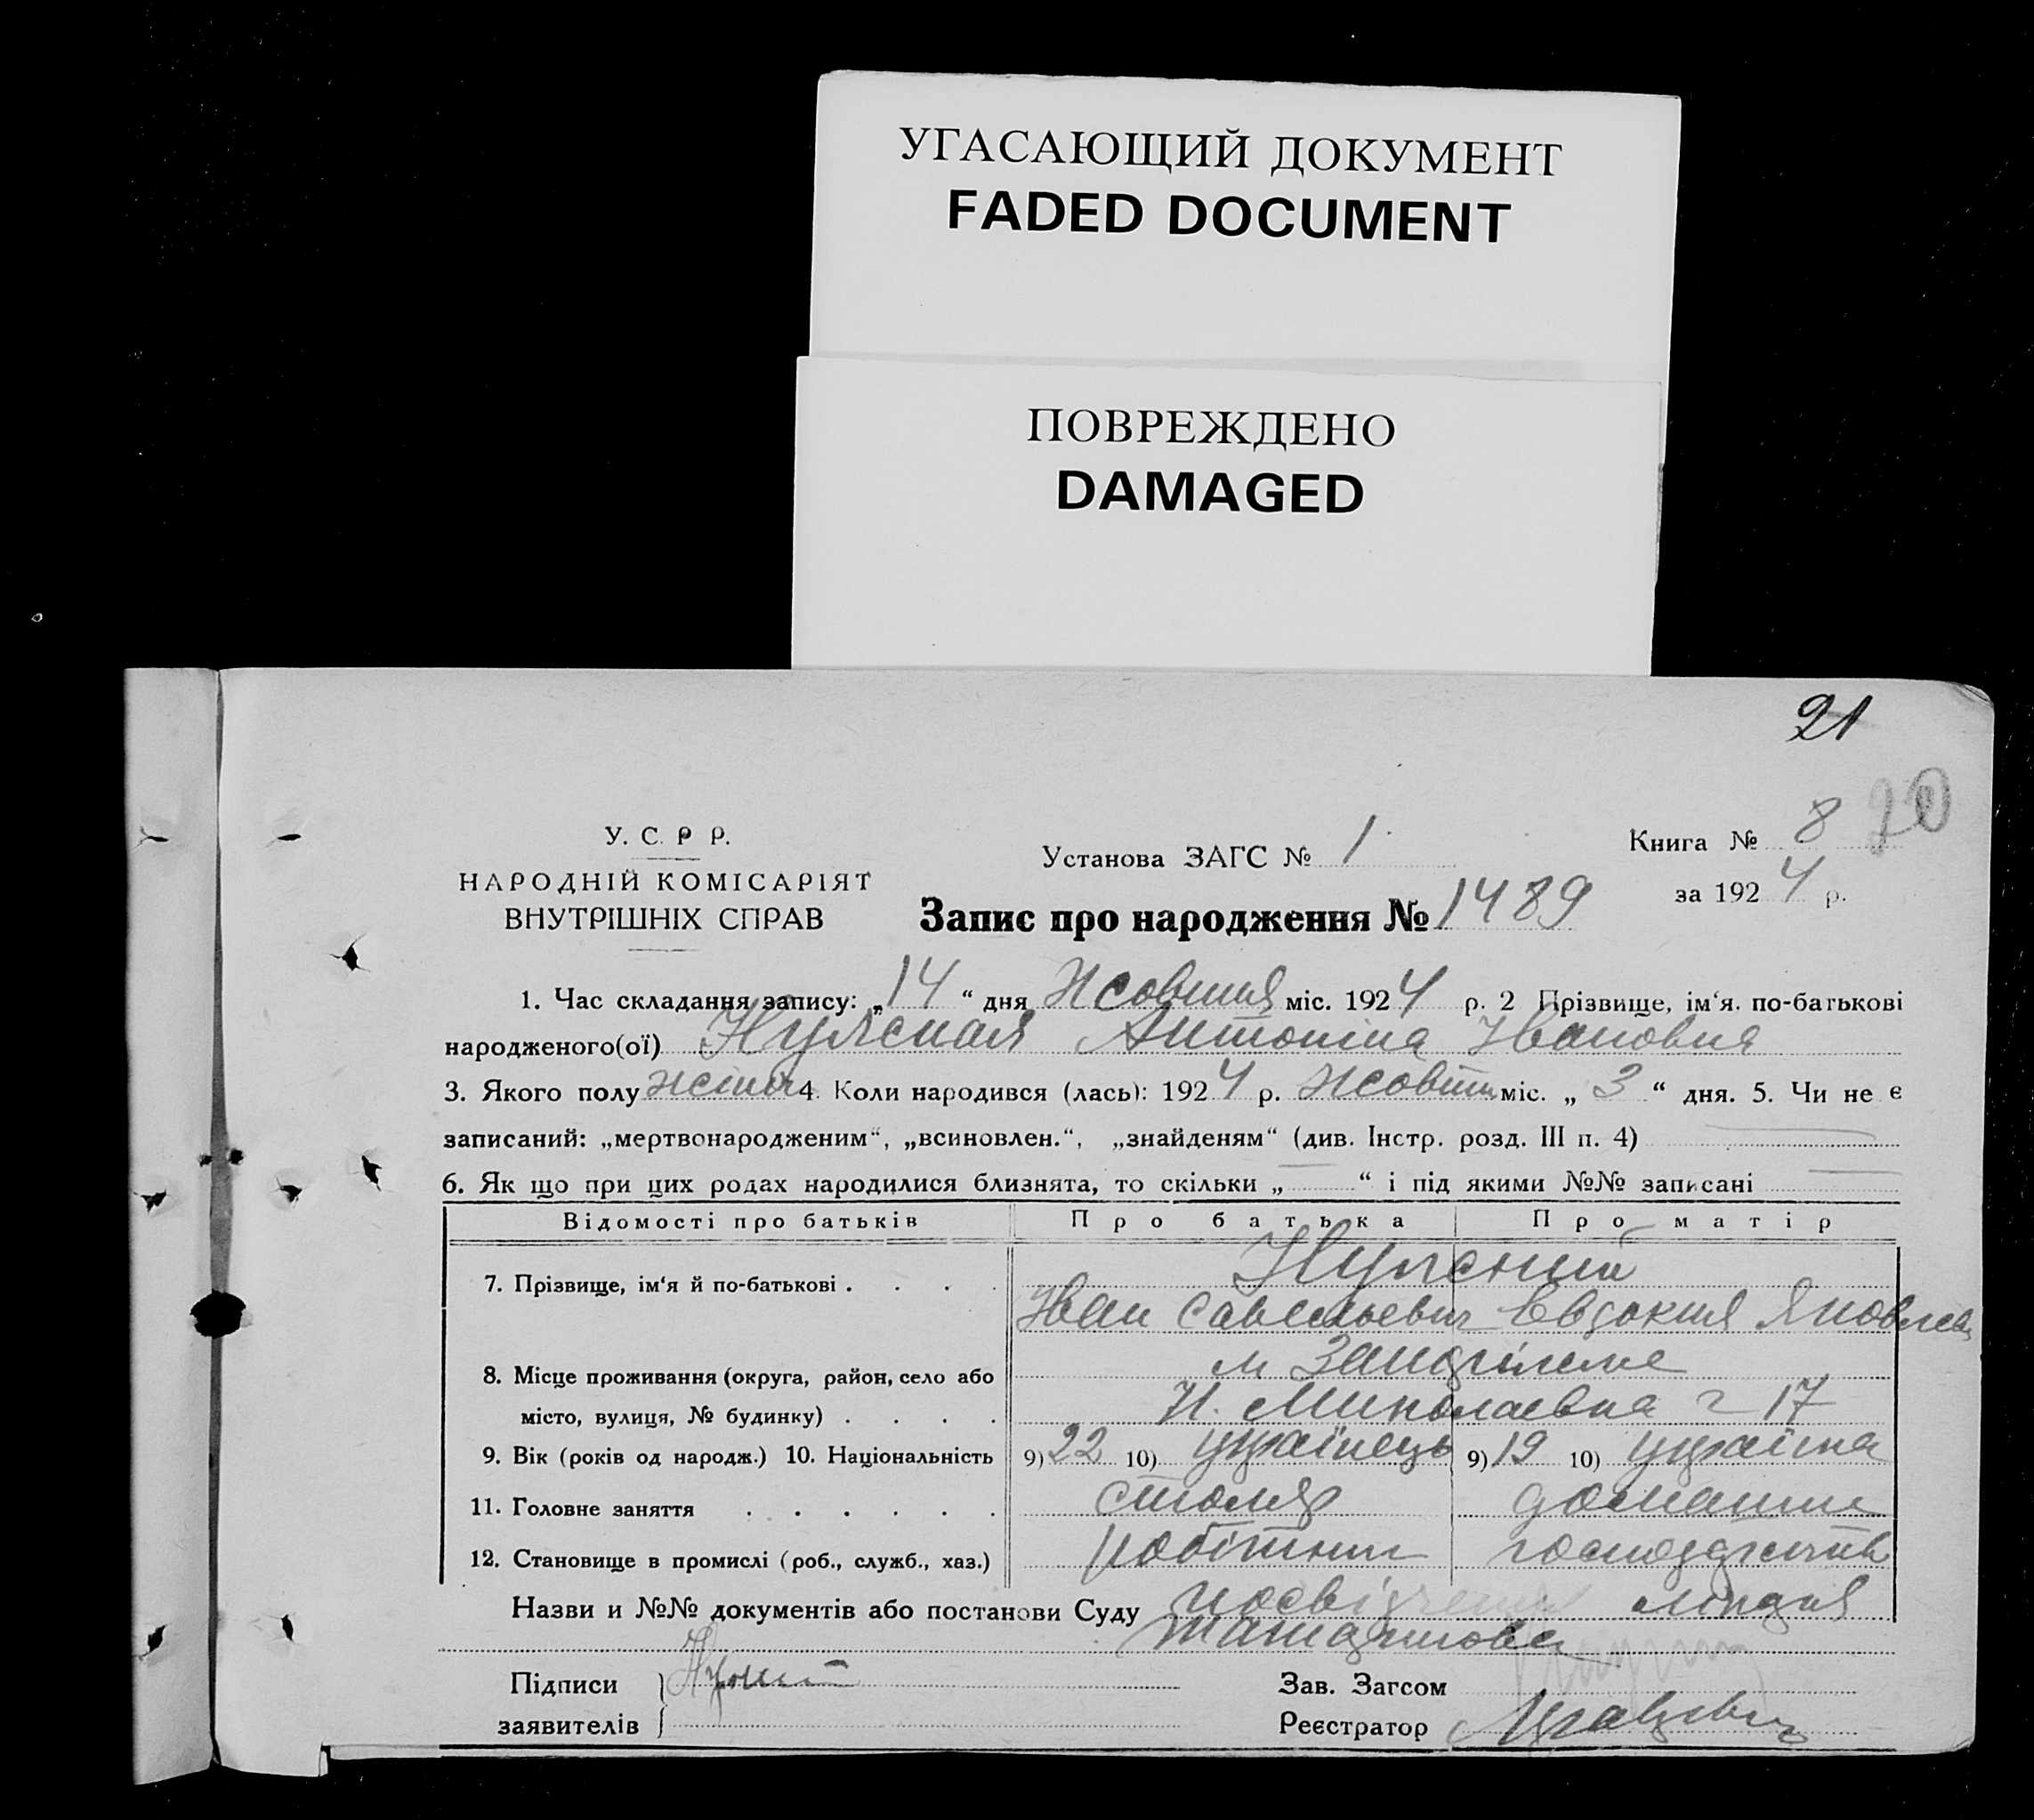 УГАСАЮЩИЙ ДОКУМЕНТ
FADED DOCUMENT
ПОВРЕЖДЕНО
DAMAGED
21
20
У. С. Р Р.
НАРОДНІЙ КОМІСАРІЯТ
ВНУТРІШНІХ СПРАВ
Установа ЗАГС № 1
Книга № 8
за 1924 р.
Запис про народження № 1489
1. Час складання запису: „14“ дня Жовтня міс. 1924 р. 2 Прізвище, ім‘я. по-батькові
народженого(ої) Антоніна Івановна
3. Якого полу жіноч 4. Коли народився (лась): 1924 р. Жовтн міс. „3“ дня. 5. Чи не є
записаний: „мертвонародженим“, „всиновлен.“, „знайденям“ (див. Інстр. розд. III п. 4)
6. Як що при цих родах народилися близнята, то скільки „ “ і під якими №№ записані
Відомості про батьків Про батька Про матір
7. Прізвище, ім‘я й по-батькові
Іван Савельевич Евдокия Яковлев
8. Місце проживання (округа, район, село або
місто, вулиця, № будинку) Н. Миколаевна 17
9. Вік (років од народж.) 10. Національність 9) 22 10) українець 9) 19 10) українка
11. Головне заняття столяр домашнє
12. Становище в промислі (роб., служб., хаз.) робітник господарств
Назви и №№ документів або постанови Суду посвідчення
Підписи
заявителів
Зав. Загсом
Реєстратор